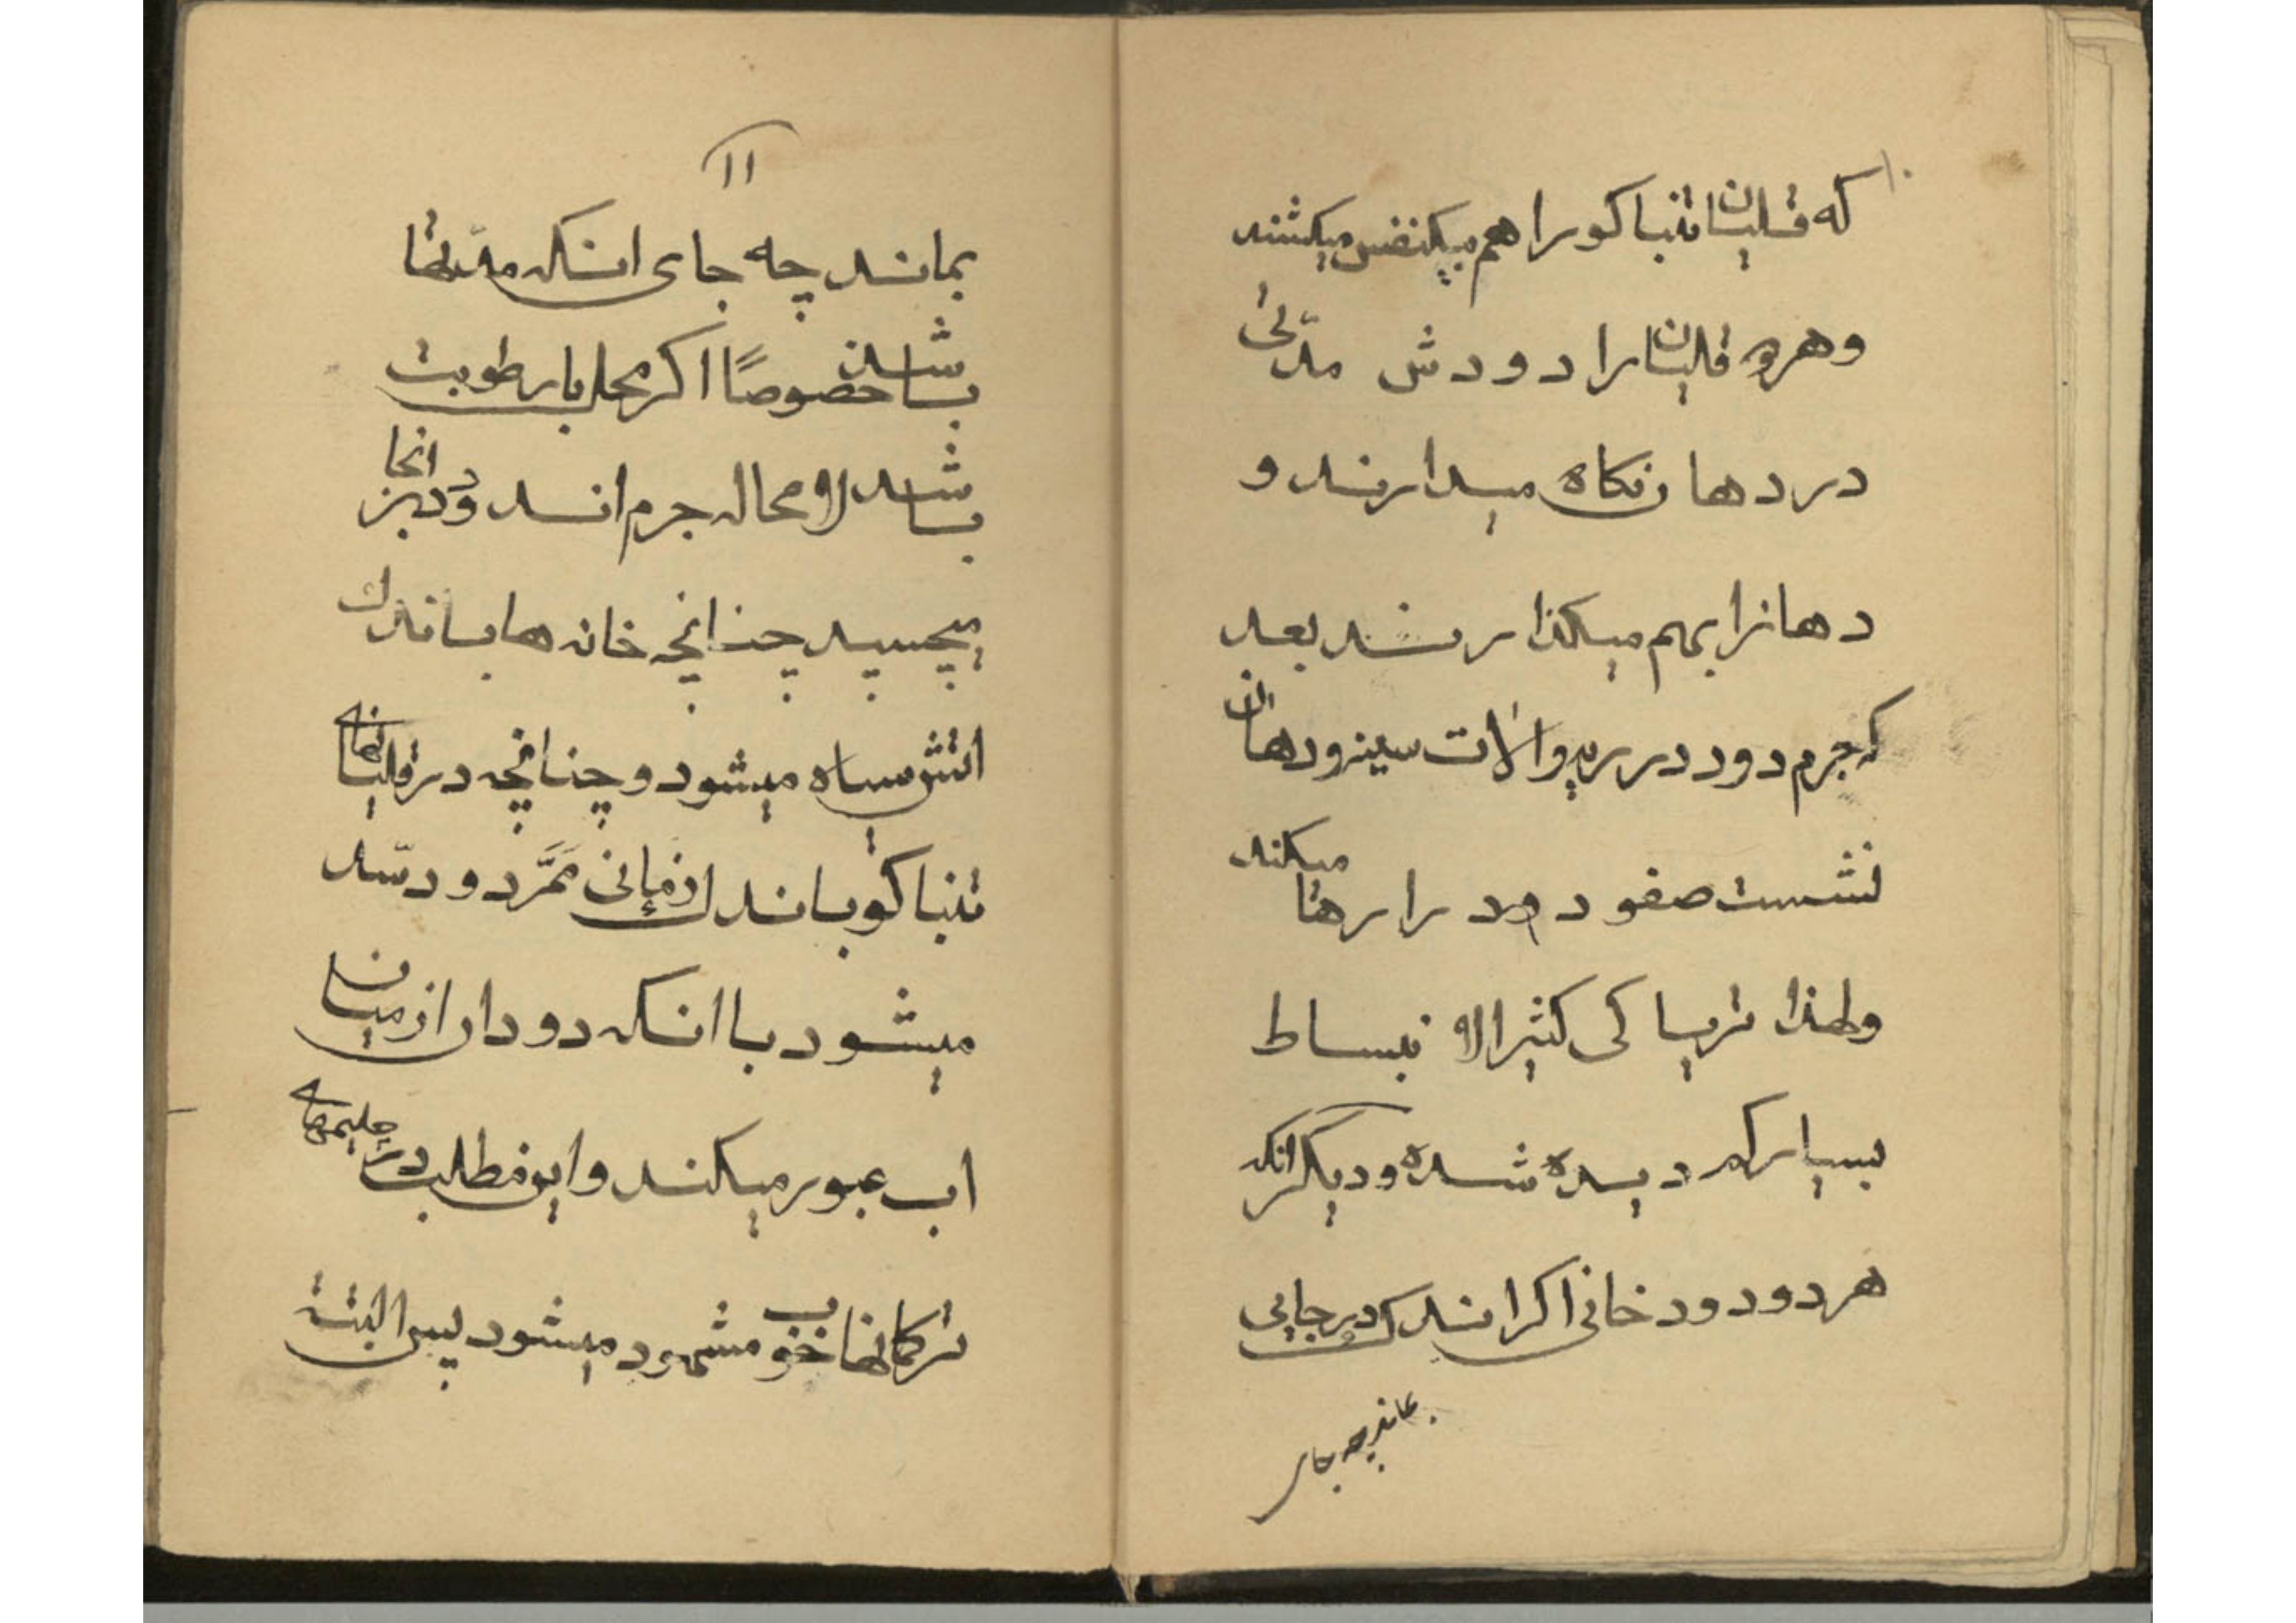 ۱۰
که قلیان تنباکو را هم بیکنفس میکشند
و هر دو قلیان را دودش مدتی
در دهان نکاه میدارند و
دهانرا بهم میکذارند بعد
که جرم دود در ریه و الات سینه و دهان
نشست صفو دود را رها میکند
ولهذا تریاکی کثیر الانبساط
بسیار کم دیده شده و دیکر انکه
هر دود و دخانی اکر اندک در جایی
بماند چه جای
۱۱
بماند چه جای انکه مدّتها
باشد خصوصًا اکر محل با رطوبت
باشد لا محاله جرم اند و در انجا
میچسبد چنانچه خانه ها باندک
اتش سیاه میشود و چنانچه در قلیانهای
تنباکو باندک زمانی مَمَّر دود سّد
میشود با انکه دود ان از میان
اب عبور میکند و این مطلب در چلیمهای
ترکمانها خوب مشهود میشود پس البتته